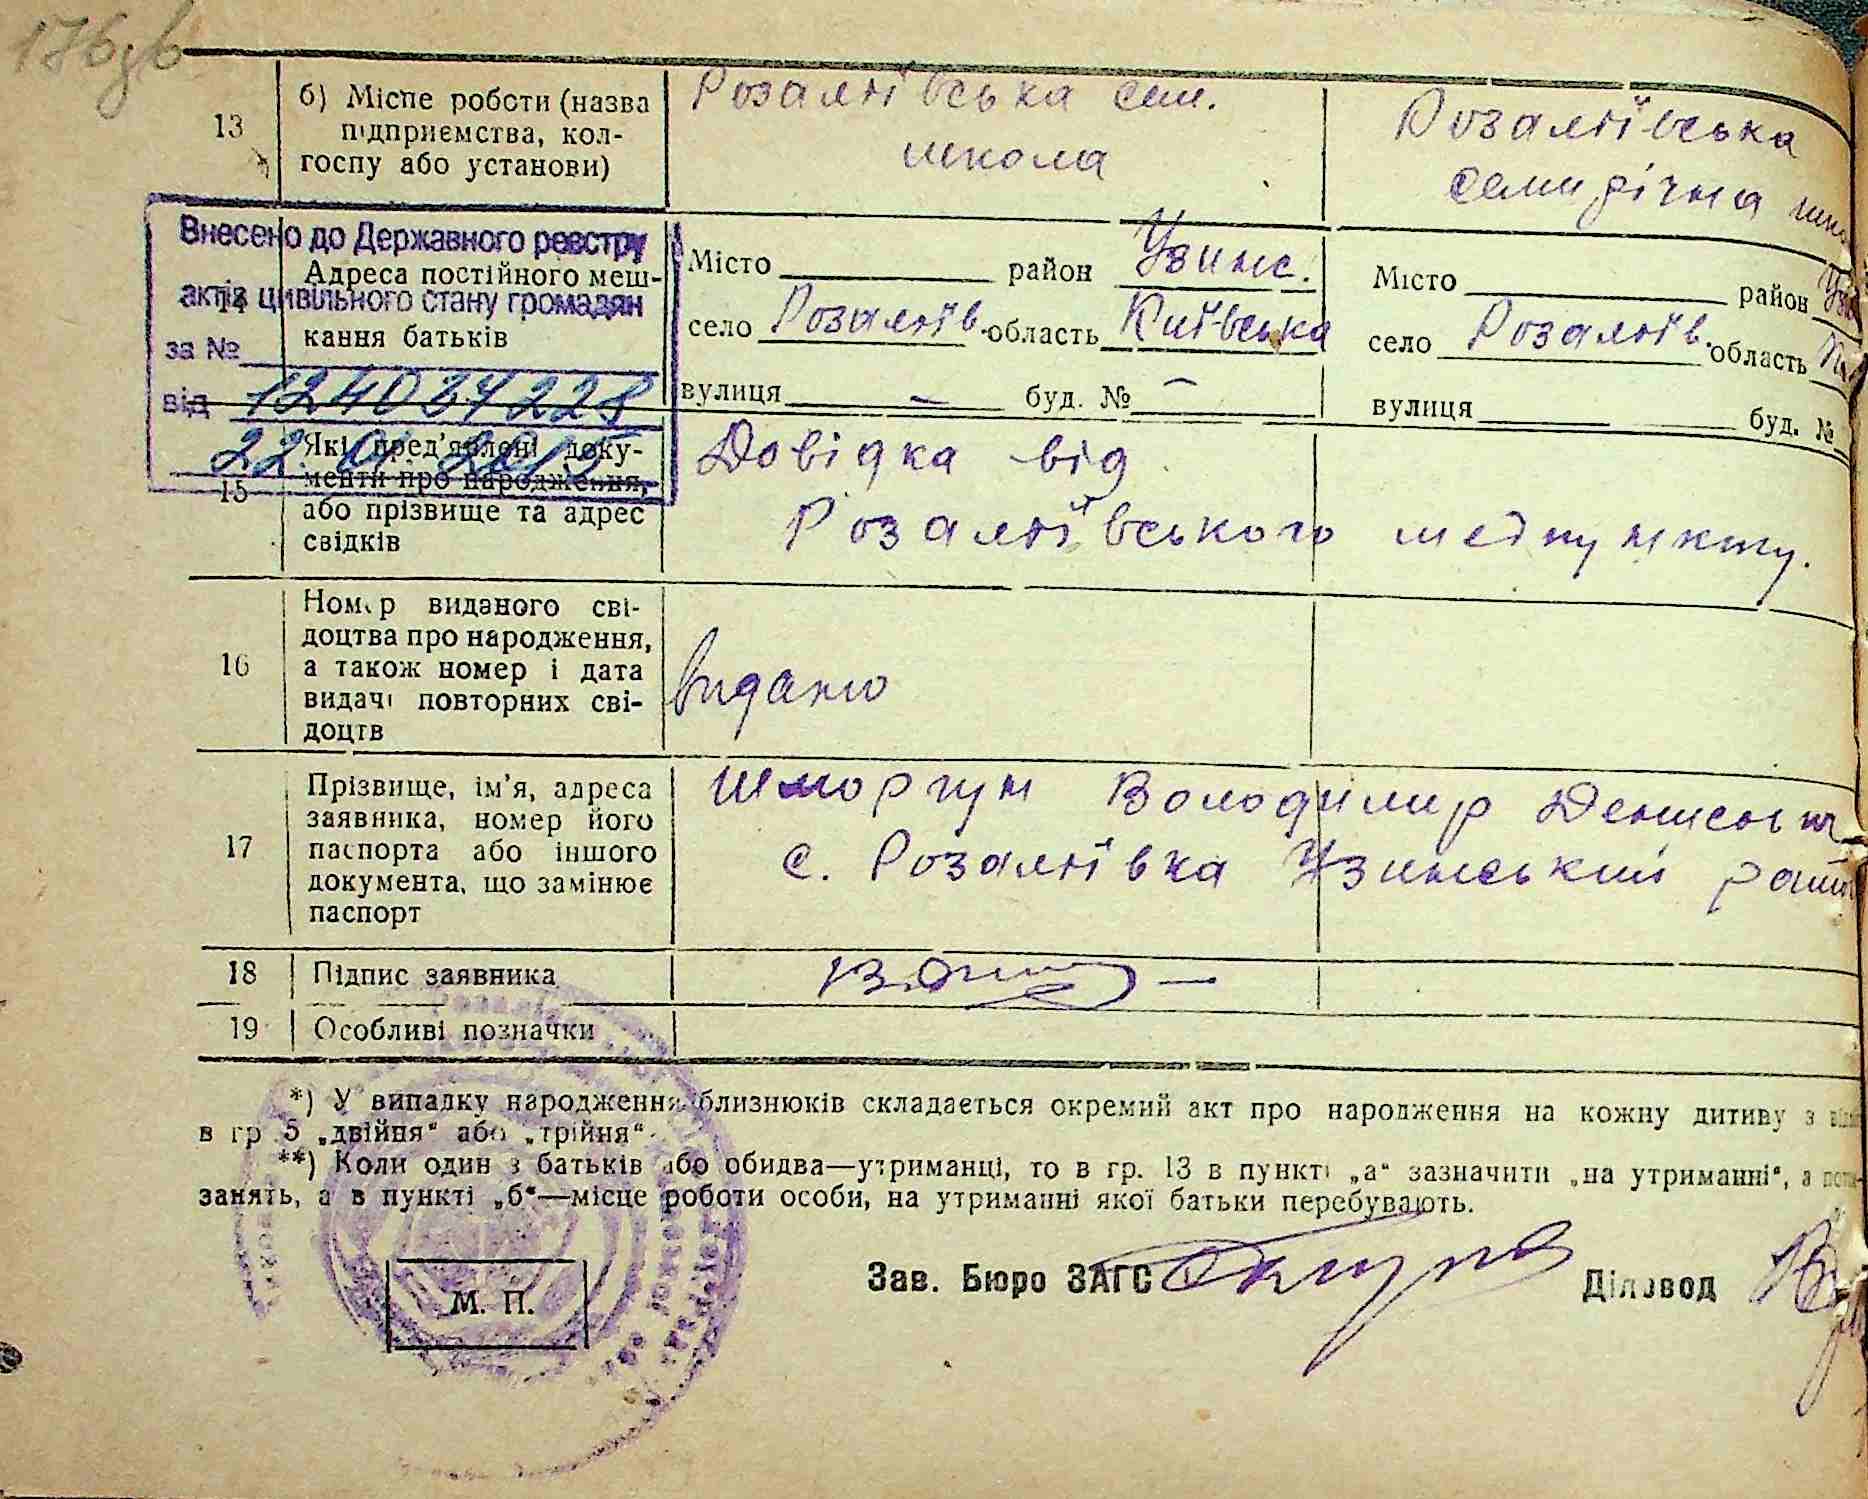 176зв
13
б) Місце роботи (назва
підприємства, кол-
госпу або установи)
Розаліївська сем.
школа
Розаліївська
семирічна
Внесено до Державного реєстру
актів цивільного стану громадян
за №
від 124084228
22.
14
Адреса постійного меш-
кання батьків
Місто район Узинс.
село Розаліїв. область Київська
вулиця — буд. № —
Місто район
село Розаліїв. область
вулиця буд. №
15
Які пред'явлені доку-
менти про народження,
або прізвище та адрес
свідків
Довідка від
Розаліївського медпункту.
16
Номер виданого сві-
доцтва про народження,
а також номер і дата
видачі повторних сві-
доцтв
видано
17
Прізвище, ім'я, адреса
заявника, номер його
паспорта або іншого
документа, що замінює
паспорт
Шморгун Володимир Денисович
с. Розаліївка Узинський район
18 Підпис заявника
19 Особливі позначки
*) У випадку народження близнюків складається окремий акт про народження на кожну дитину з
в гр. 5 „двійня“ або „трійня“.
**) Коли один з батьків або обидва—утриманці, то в гр. 13 в пункті „а“ зазначити „на утриманні“, а
занять, а в пункті „б“—місце роботи особи, на утриманні якої батьки перебувають.
Зав. Бюро ЗАГС Діловод
М. П.